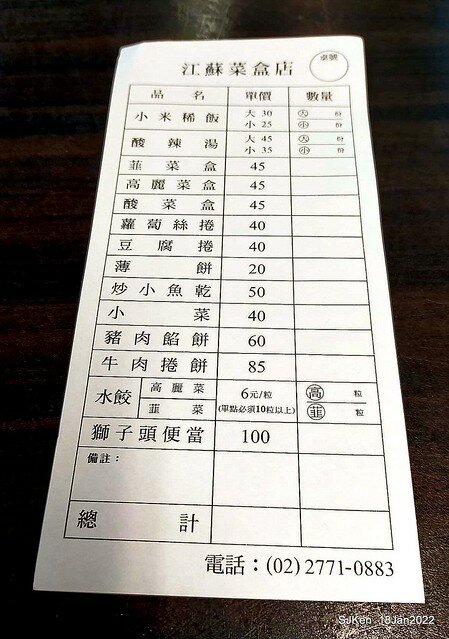 江蘇菜盒店 桌號
品名 單價 數量
小米稀飯 大 30 小 25 大 份 小 份
酸辣湯 大 45 小 35 大 份 小 份
韮菜盒 45
高麗菜盒 45
酸菜盒 45
蘿蔔絲捲 40
豆腐捲 40
薄餅 20
炒小魚乾 50
小菜 40
豬肉餡餅 60
牛肉捲餅 85
水餃 高麗菜 韮菜 6元/粒 (單點必須10粒以上) 高 粒 韮 粒
獅子頭便當 100
備註：
總計
電話：(02) 2771-0883
SJKen 18Jan2022